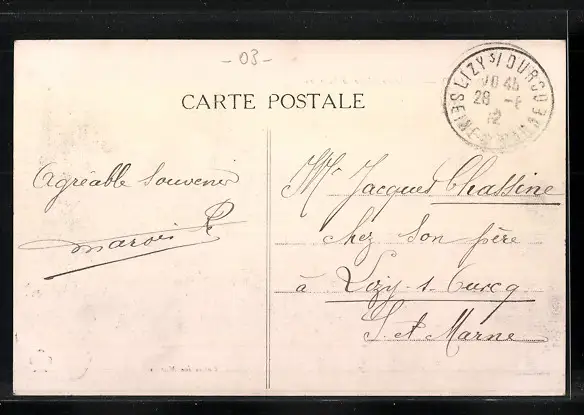 - 03 -
CARTE POSTALE
LIZY S/ OURCQ
28 -
SEINE & MARNE
Agréable Souvenir
Mr Jacques Chassine
chez son père
à Lizy-s-Ourcq
S. et Marne